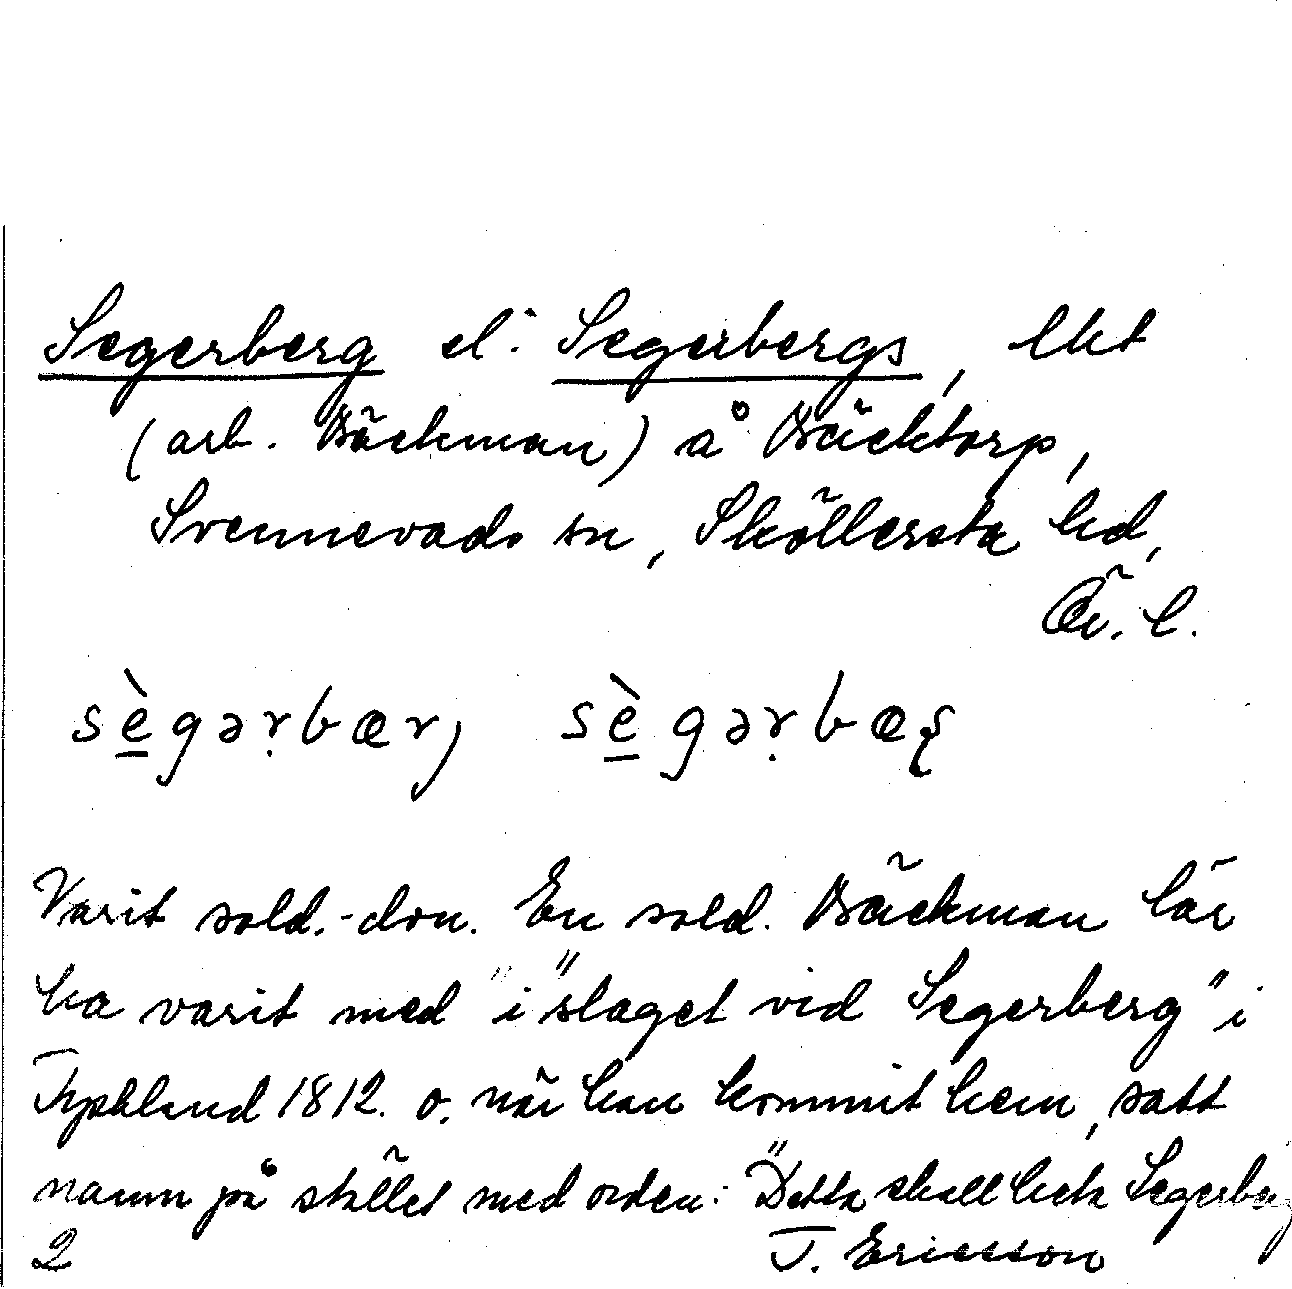 Segerberg el. Segerbergs, lht
(arb. Bäckman) å Bäcktorp,
Svennevads sn, Sköllersta hd,
Ör. l.
sè̲gəṛbær, sè̲gəṛbæş
Varit sold.-don. En sold. Bäckman lär
ha varit med "i "slaget vid Segerberg" i
Tyskland 1812. o. när han kommit hem, satt
namn på stället med orden: "Detta skall heta Segerberg
2 T. Ericsson